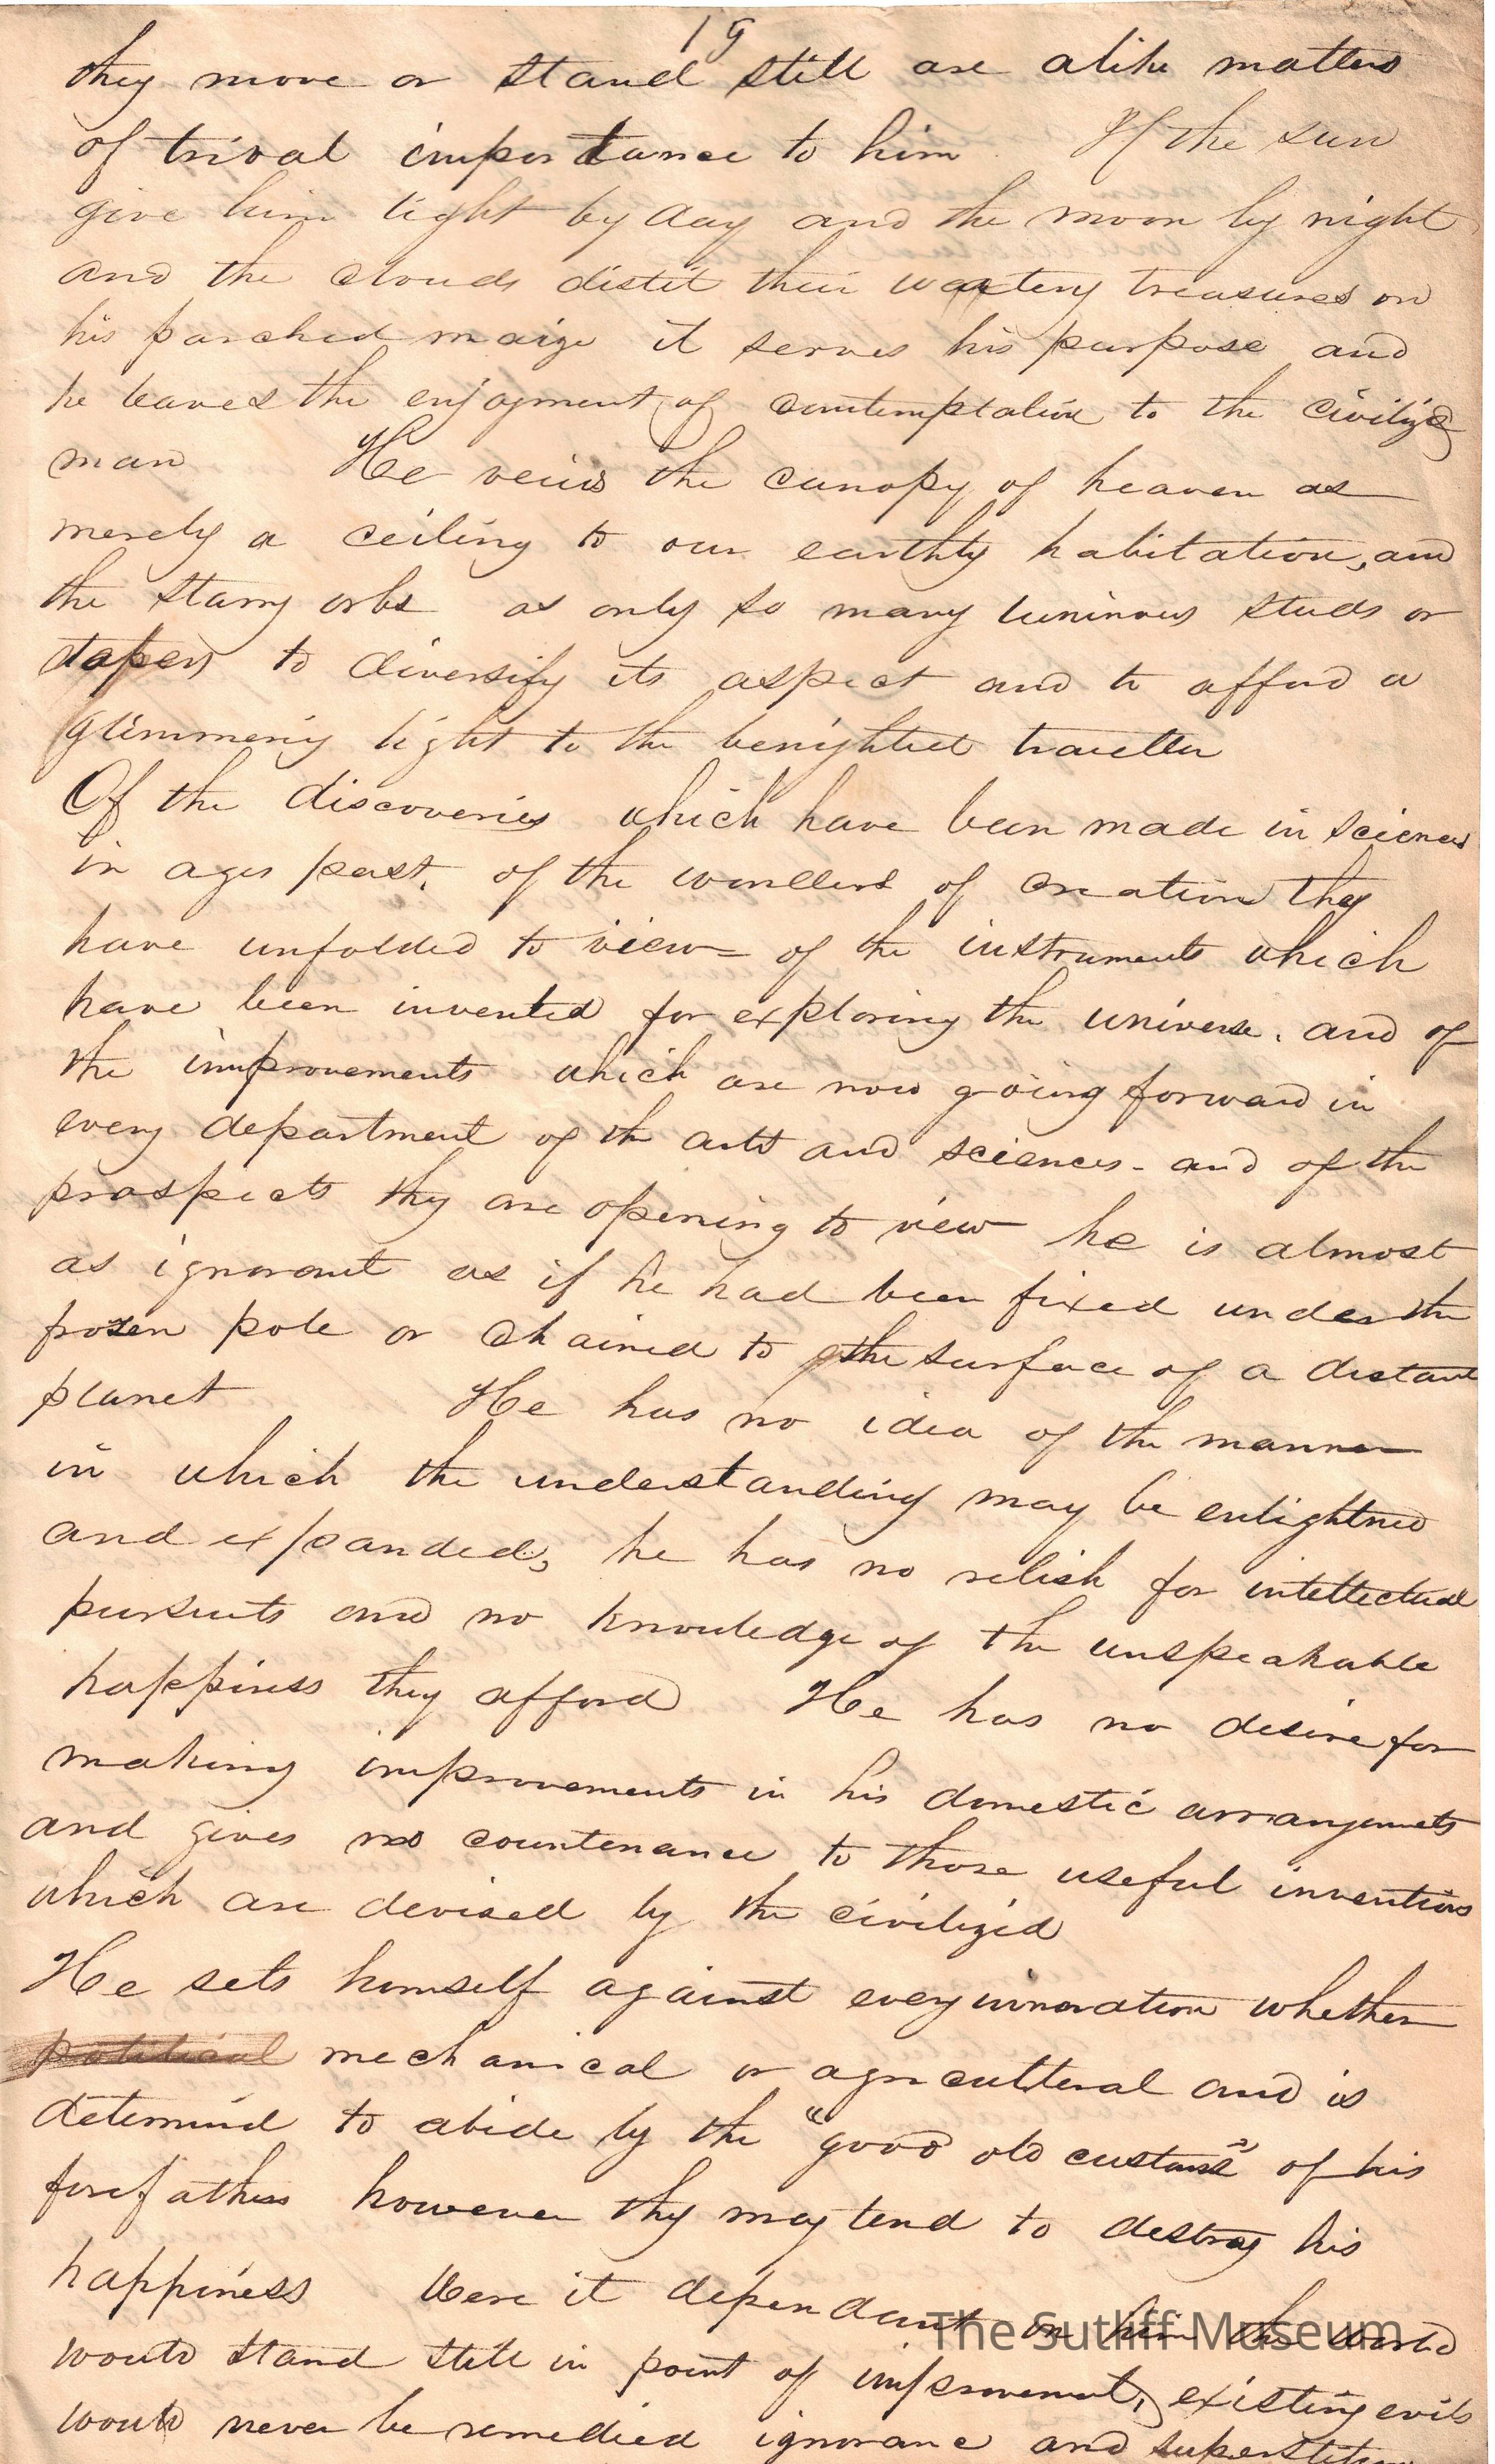 19
they move or stand still are alike matters
of trival importance to him If the sun
give him light by day and the moon by night
and the clouds distil their watery treasures on
his parched maize it serves his purpose and
he leaves the enjoyment of contemplation to the civilized
man He veiws the canopy of heaven as
merely a ceiling to our earthly habitation, and
the starry orbs as only so many luminous studs or
tapers to diversify its aspect and to afford a
glimmering light to the benighted traveller
Of the discoveries which have been made in sciences
in ages past, of the wonders of creation they
have unfolded to view - of the instruments which
have been invented for exploring the universe. and of
the improvements which are now going forward in
every department of the arts and sciences - and of the
prospects they are opening to view he is almost
as ignorant as if he had been fixed under the
frozen pole or chained to the surface of a distant
planet He has no idea of the manner
in which the understanding may be enlightned
and expanded, he has no relish for intellectual
pursuits and no knowledge of the unspeakable
happiness they afford He has no desire for
making improvements in his domestic arrangements
and gives no countenance to those useful inventions
which are devised by the civilized
He sets himself against every innovation whether
political mechanical or agricultural and is
determind to abide by the "good old customs" of his
forefathers however they may tend to destroy his
happiness Were it dependant on him the world
would stand still in point of improvement, existing evils
would never be remedied ignorance and superstition
The Sutliff Museum